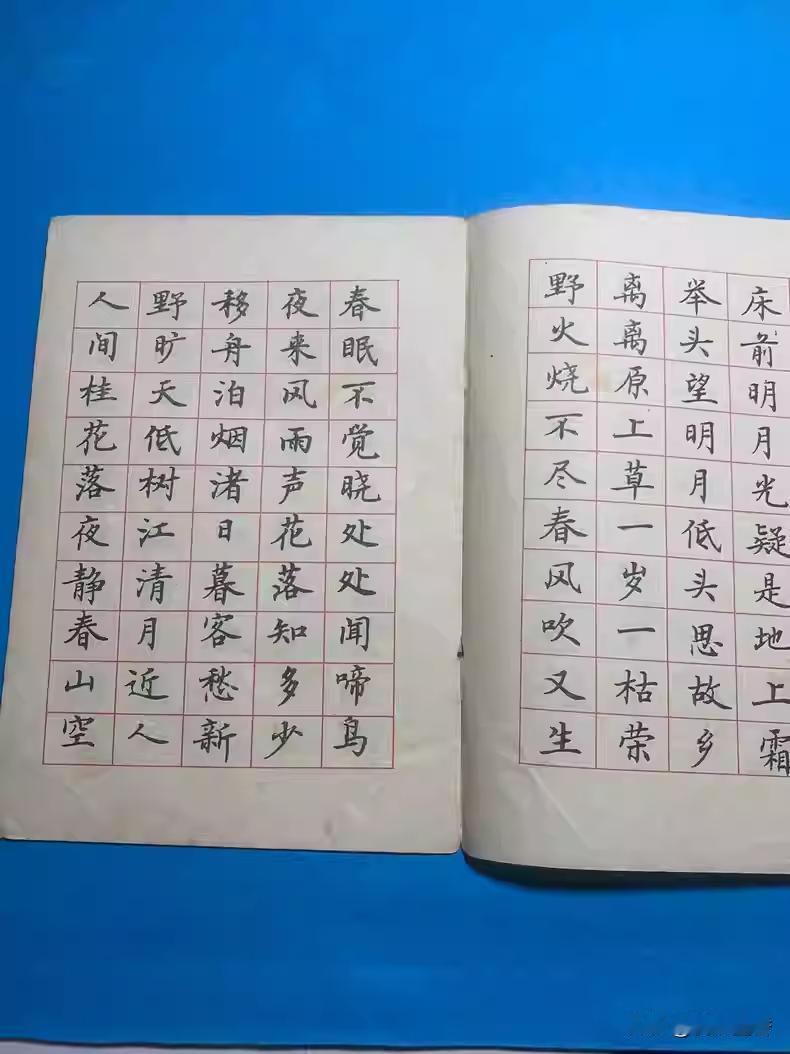 床前明月光疑是地上霜
举头望明月低头思故乡
离离原上草一岁一枯荣
野火烧不尽春风吹又生
春眠不觉晓处处闻啼鸟
夜来风雨声花落知多少
移舟泊烟渚日暮客愁新
野旷天低树江清月近人
人间桂花落夜静春山空